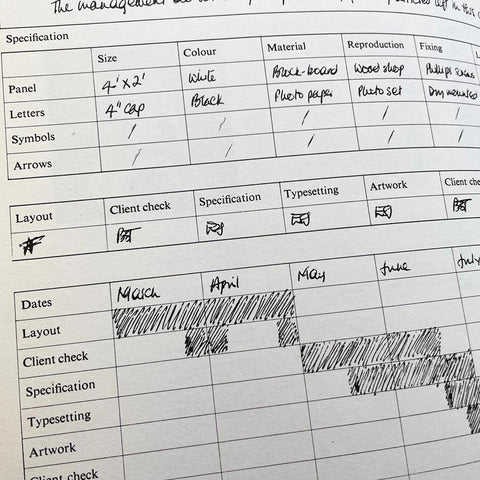 The management
left in this
Specification
Size Colour Material Reproduction Fixing L
Panel 4' x 2' White Block-board Wood shop Phillips
Letters 4" cap Black Photo paper Photo set Dry mounted
Symbols / / / / /
Arrows / / / / /
Layout Client check Specification Typesetting Artwork Client che
Dates March April May June July
Layout
Client check
Specification
Typesetting
Artwork
Client check